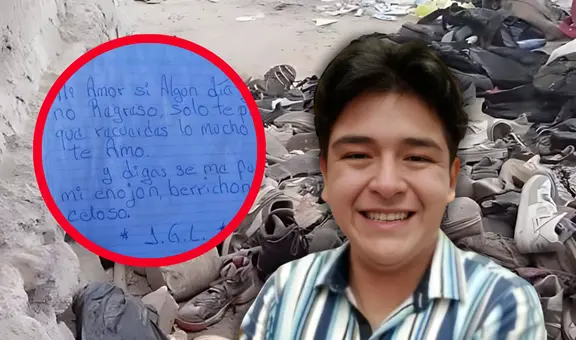 Mi Amor si Algon día
no Ragraso, Solo te p
que racuerdas lo mucho
te Amo.
y digas se ma fu
mi enojon, berrichon
celoso.
* J.G.L. *